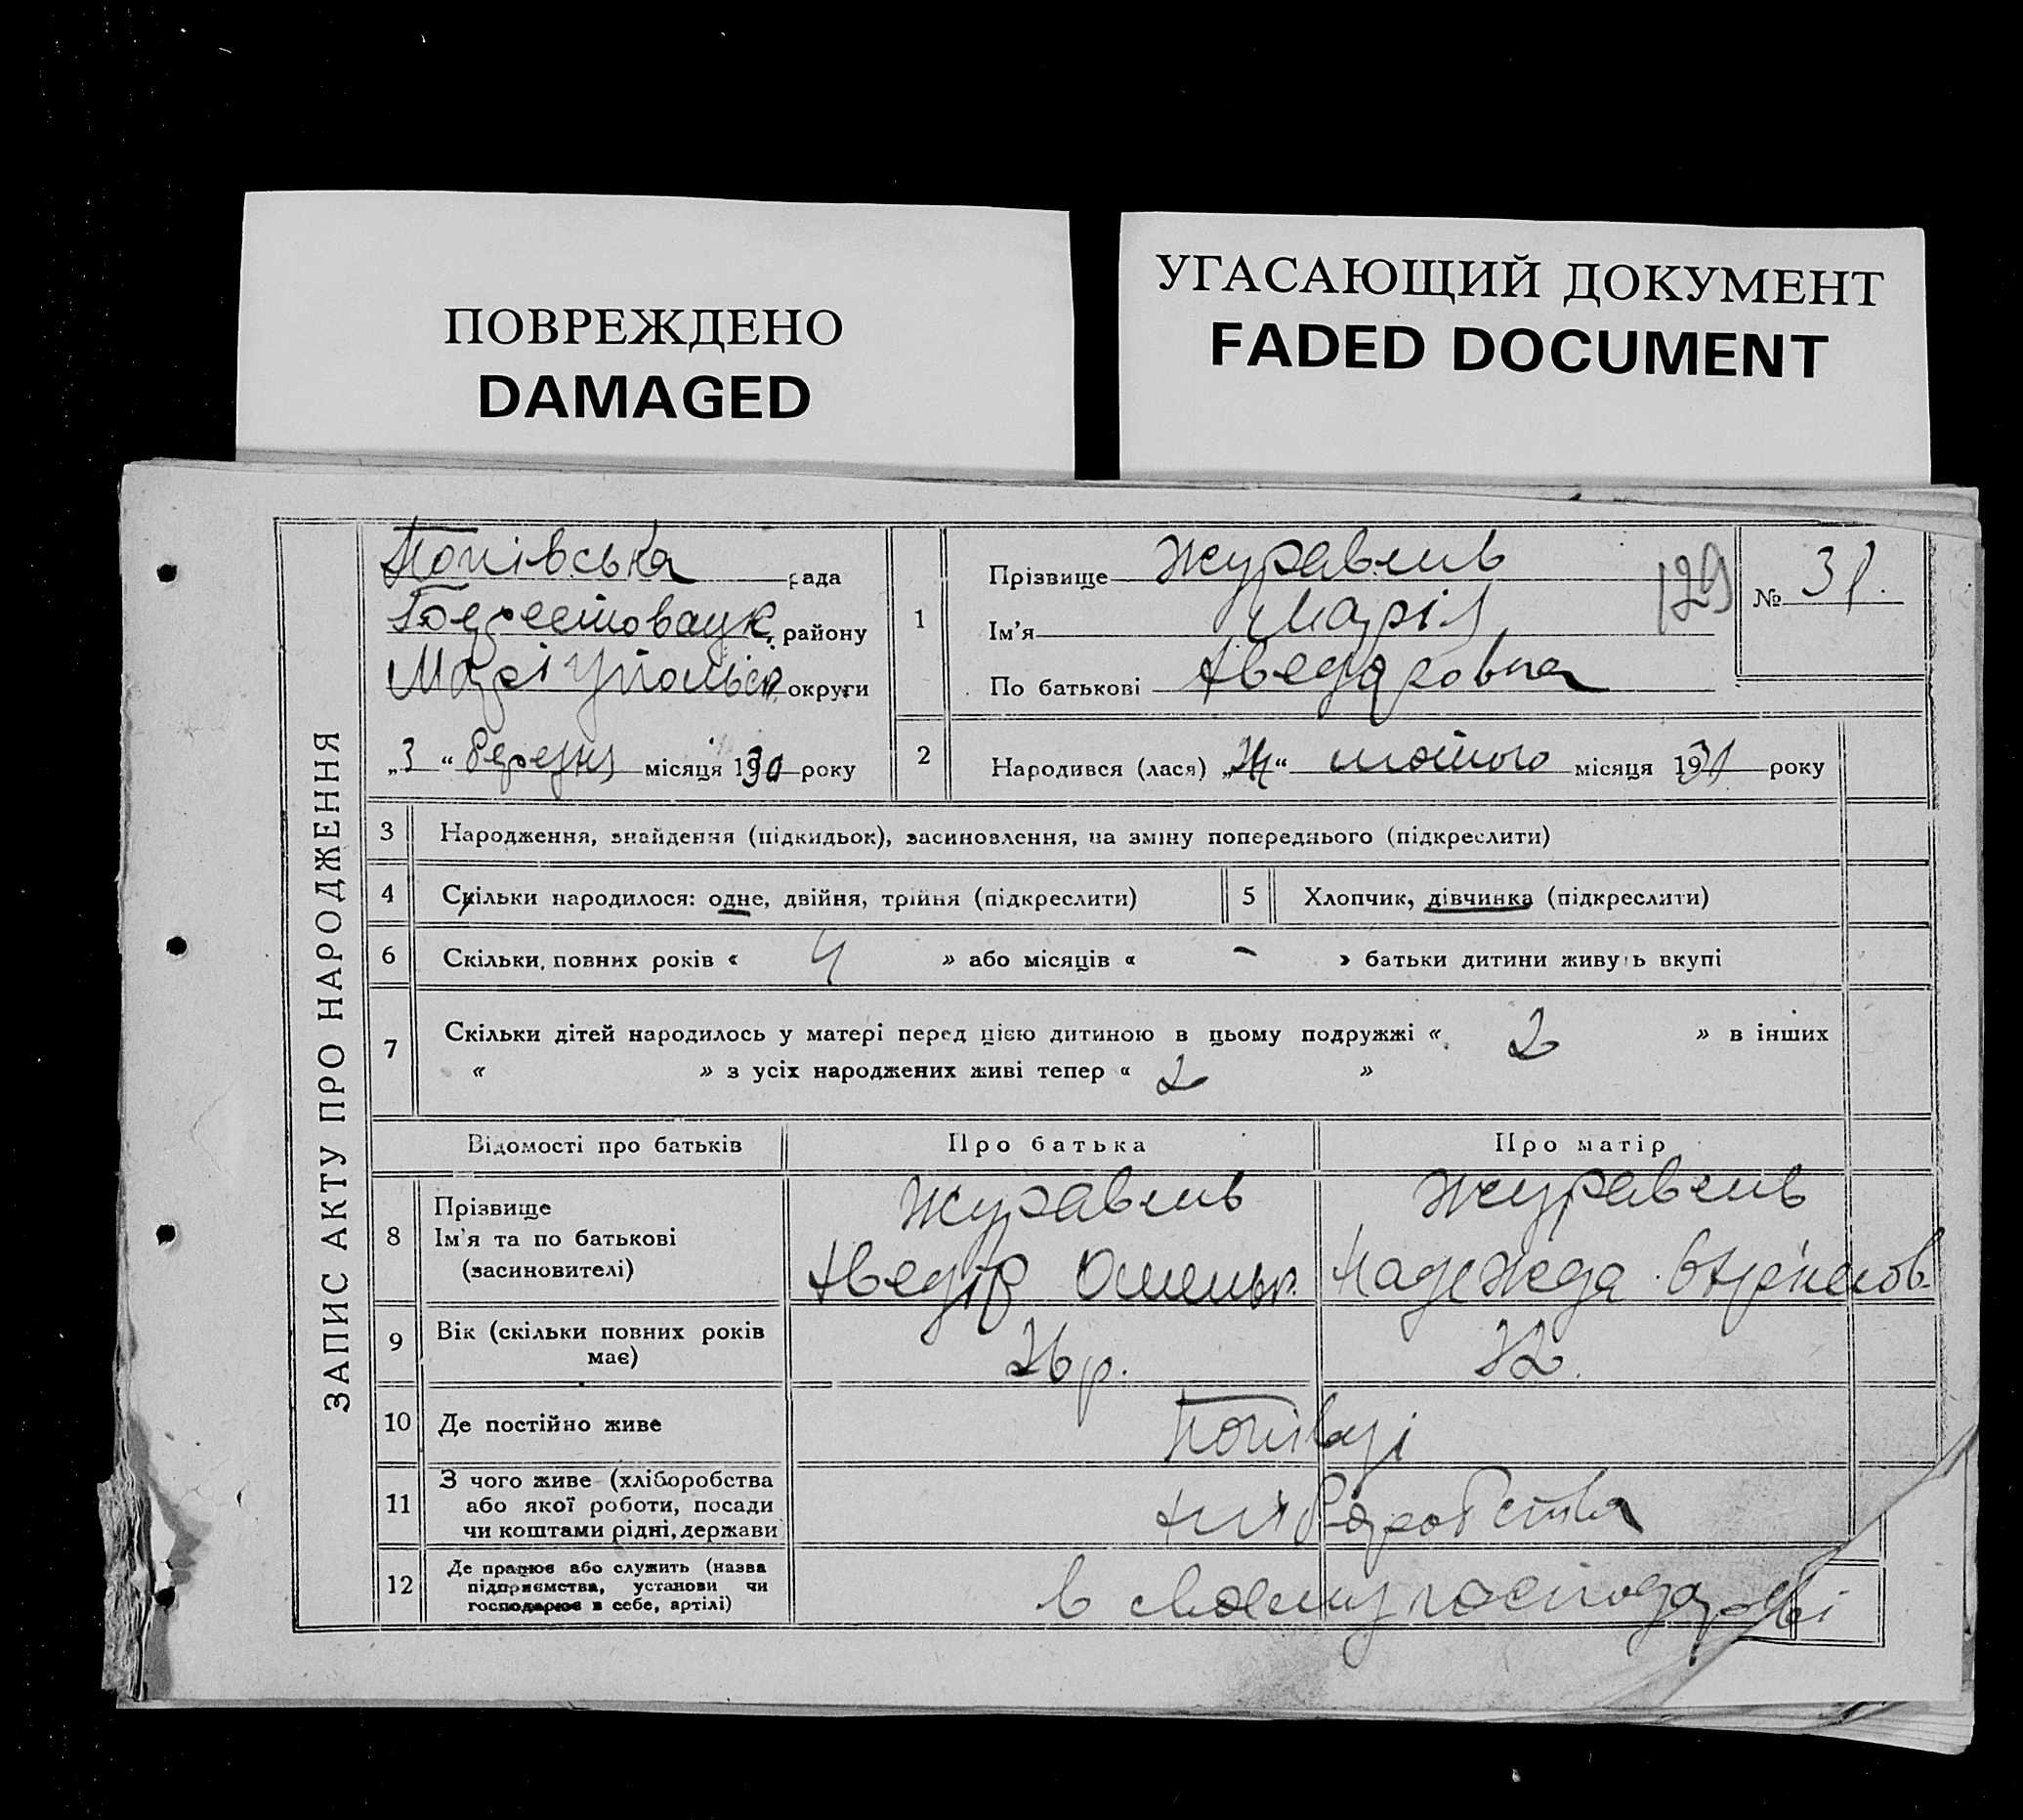 ПОВРЕЖДЕНО
DAMAGED
УГАСАЮЩИЙ ДОКУМЕНТ
FADED DOCUMENT
ЗАПИС АКТУ ПРО НАРОДЖЕННЯ
Попівська рада
району
округи
„3“ березня місяця 1930 року
1
Прізвище Журавель
Ім'я Марія
По батькові Хведоровна
129
№ 31.
2
Народився (лася) лютого місяця року
3 Народження, знайдення (підкидьок), засиновлення, на зміну попереднього (підкреслити)
4 Скільки народилося: одне, двійня, трійня (підкреслити)
5 Хлопчик, дівчинка (підкреслити)
6 Скільки повних років « 4 » або місяців « - » батьки дитини живуть вкупі
7 Скільки дітей народилось у матері перед цією дитиною в цьому подружжі « 2 » в інших
« » з усіх народжених живі тепер « 2 »
Відомості про батьків Про батька Про матір
8 Прізвище
Ім'я та по батькові
(засиновителі)
Журавель
Хведір Омельк.
Журавель
Надежда
9 Вік (скільки повних років
має)
26 р.
10 Де постійно живе
Попівці
11 З чого живе (хліборобства
або якої роботи, посади
чи коштами рідні, держави
хліборобства
12 Де працює або служить (назва
підприємства, установи чи
господарює в себе, артілі)
в своему господарстві